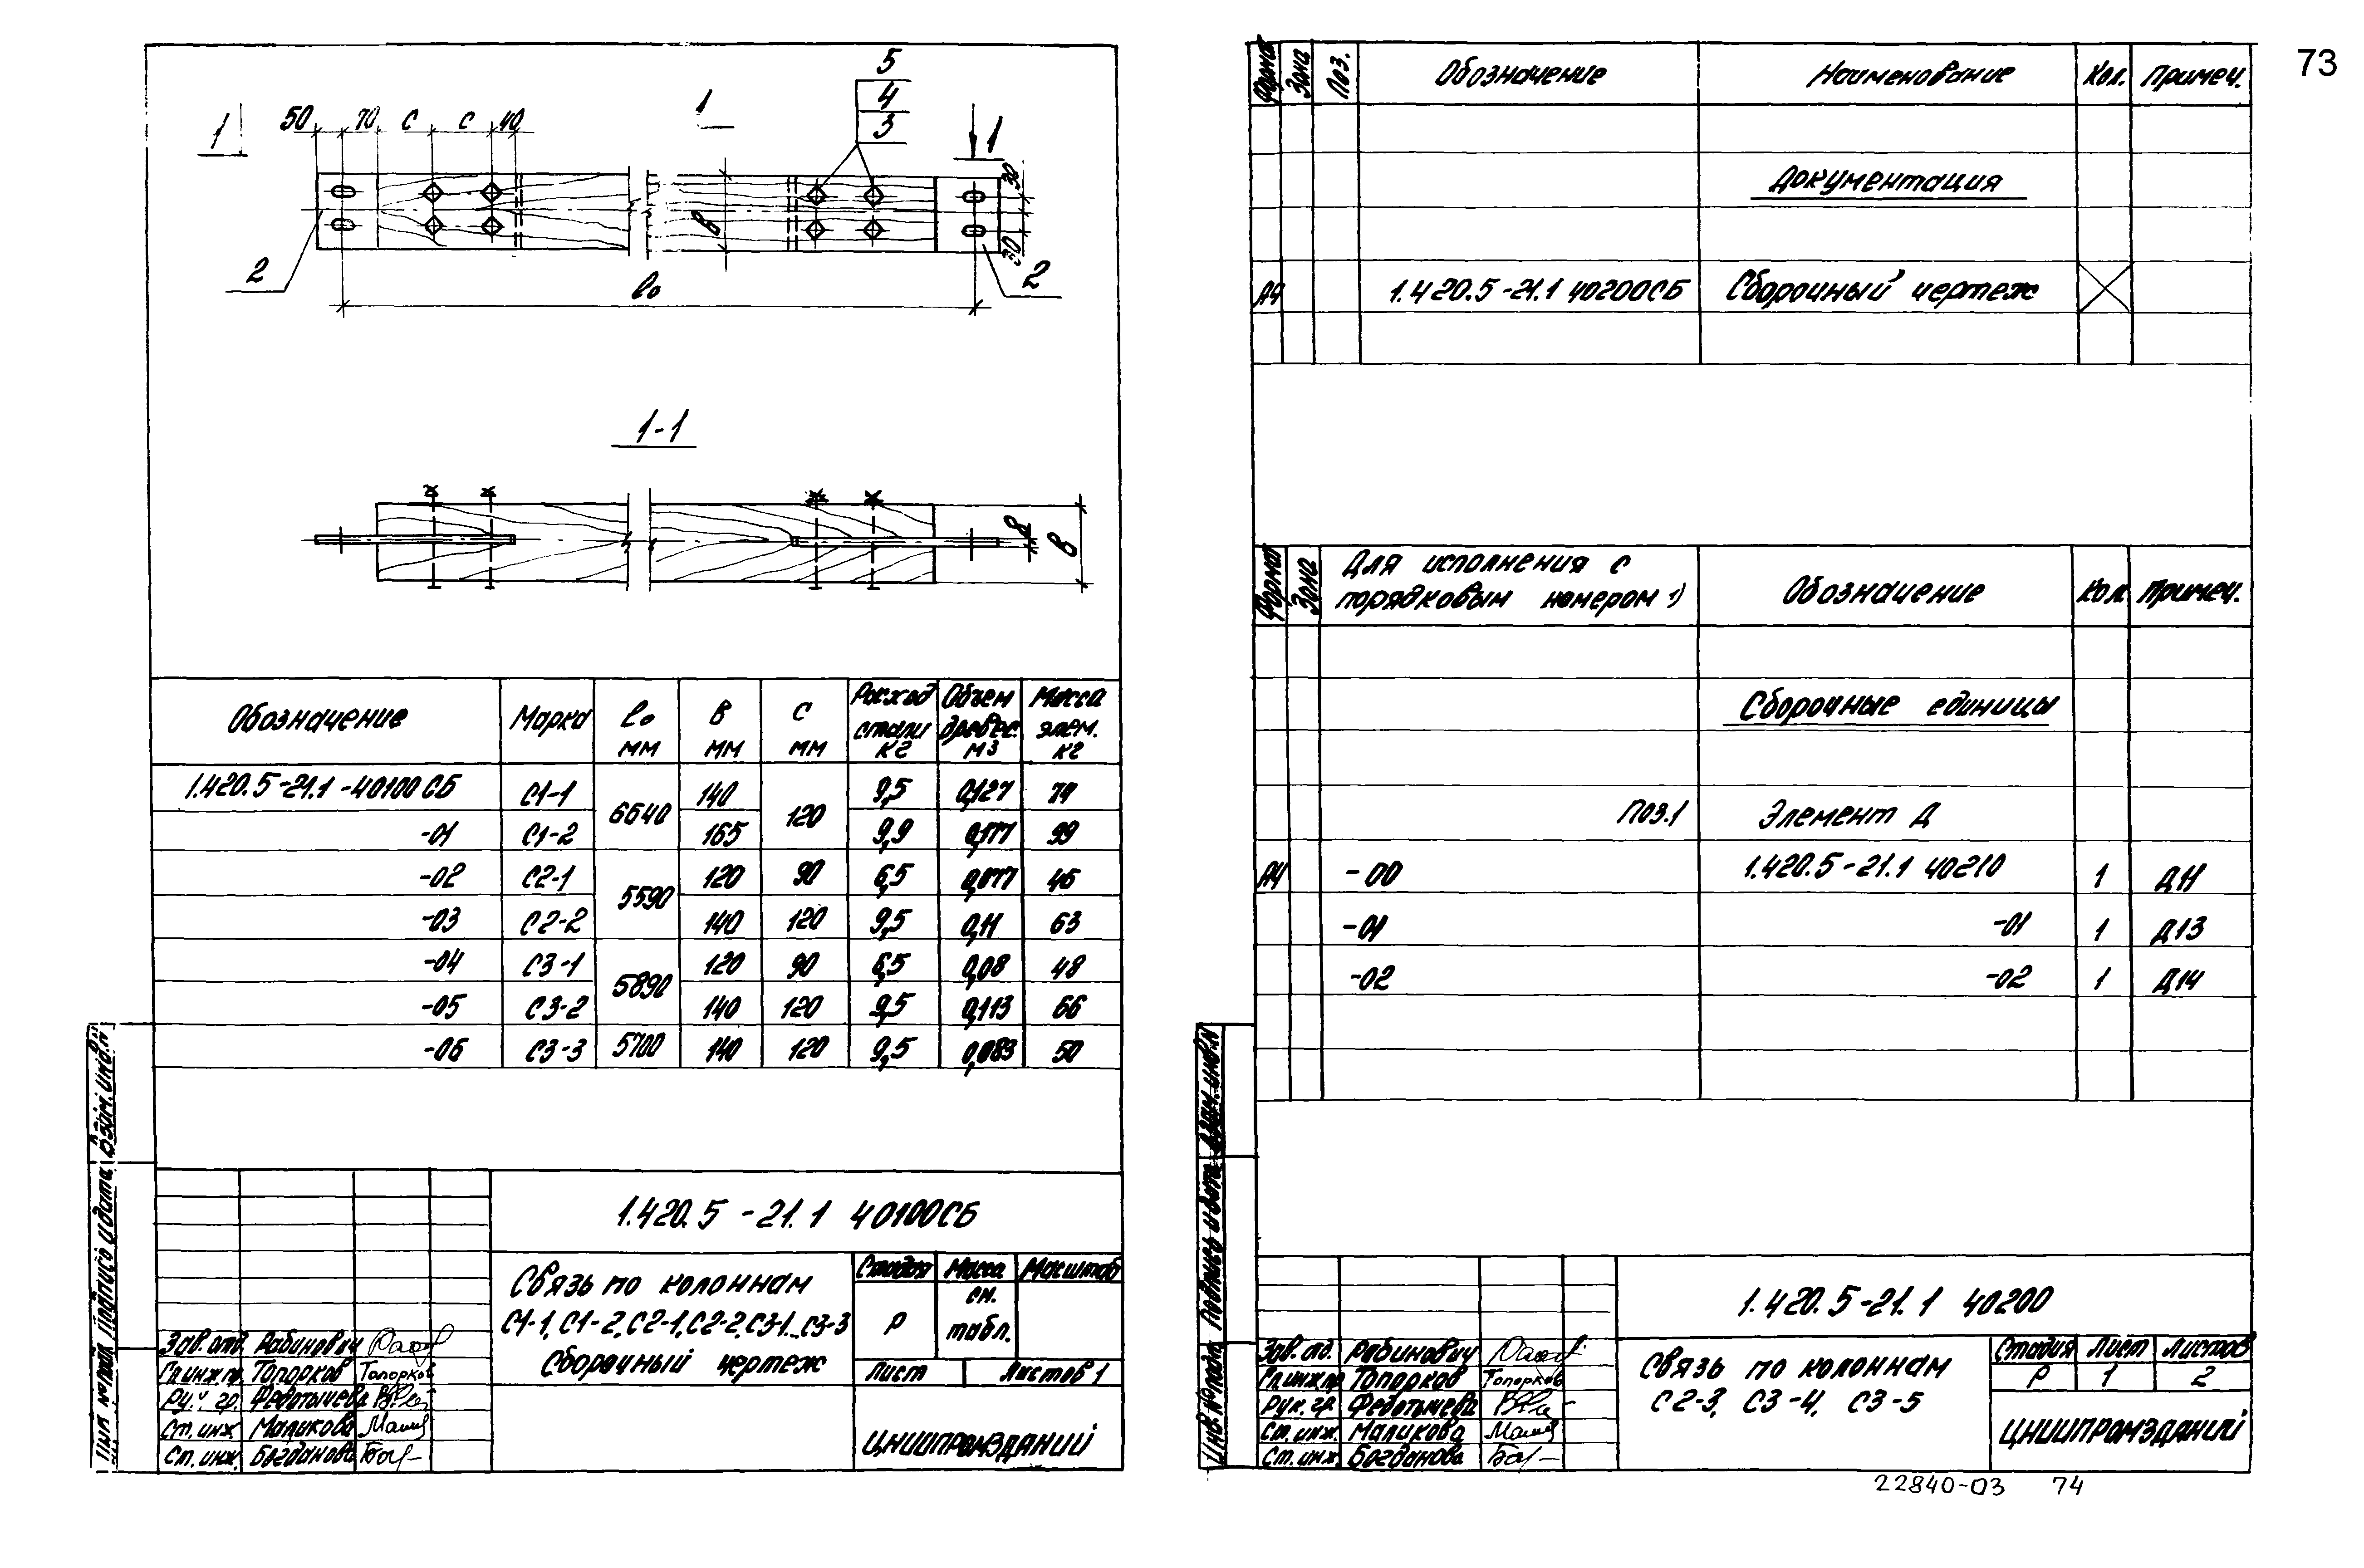 73
5
4
3
1
1
1
50
70
С
С
40
30
30
в
2
2
l₀
1-1
8
в
Обозначение Марка l₀ мм В мм С мм Расход стали кг Объем древес. м3 Масса элем. кг
1.420.5-21.1-40100СБ С1-1 6640 140 120 9,5 0,127 74
-01 С1-2 165 9,9 0,177 99
-02 С2-1 5590 120 90 6,5 0,077 46
-03 С2-2 140 120 9,5 0,11 63
-04 С3-1 5890 120 90 6,5 0,08 48
-05 С3-2 140 120 9,5 0,113 66
-06 С3-3 5700 140 120 9,5 0,083 50
Инв № подл Подпись и дата Взам. инв. N
1.420.5-21.1 40100СБ
Связь по колоннам
С1-1, С1-2, С2-1, С2-2, С3-1...С3-3
Сборочный чертеж
Стадия Масса Масштаб
Р см. табл.
Лист Листов 1
ЦНИИПРОМЗДАНИЙ
Зав. отд. Рабинович
Гл.инж.пр. Топорков Топорков
Рук. гр. Федотычева
Ст. инж. Маликова
Ст. инж. Богданова
Формат Зона Поз. Обозначение Наименование Кол. Примеч.
Документация
А4 1.420.5-21.1 40200СБ Сборочный чертеж
Формат Зона Для исполнения с порядковым номером 1) Обозначение Кол. Примеч.
Сборочные единицы
Поз.1 Элемент Д
А4 -00 1.420.5-21.1 40210 1 Д11
-01 -01 1 Д13
-02 -02 1 Д14
Инв. № подл. Подпись и дата Взам. инв. N
1.420.5-21.1 40200
Связь по колоннам
С2-3, С3-4, С3-5
Стадия Лист Листов
Р 1 2
ЦНИИПРОМЗДАНИЙ
Зав. отд. Рабинович
Гл.инж.пр. Топорков Топорков
Рук. гр. Федотычева
Ст. инж. Маликова
Ст. инж. Богданова
22840-03 74